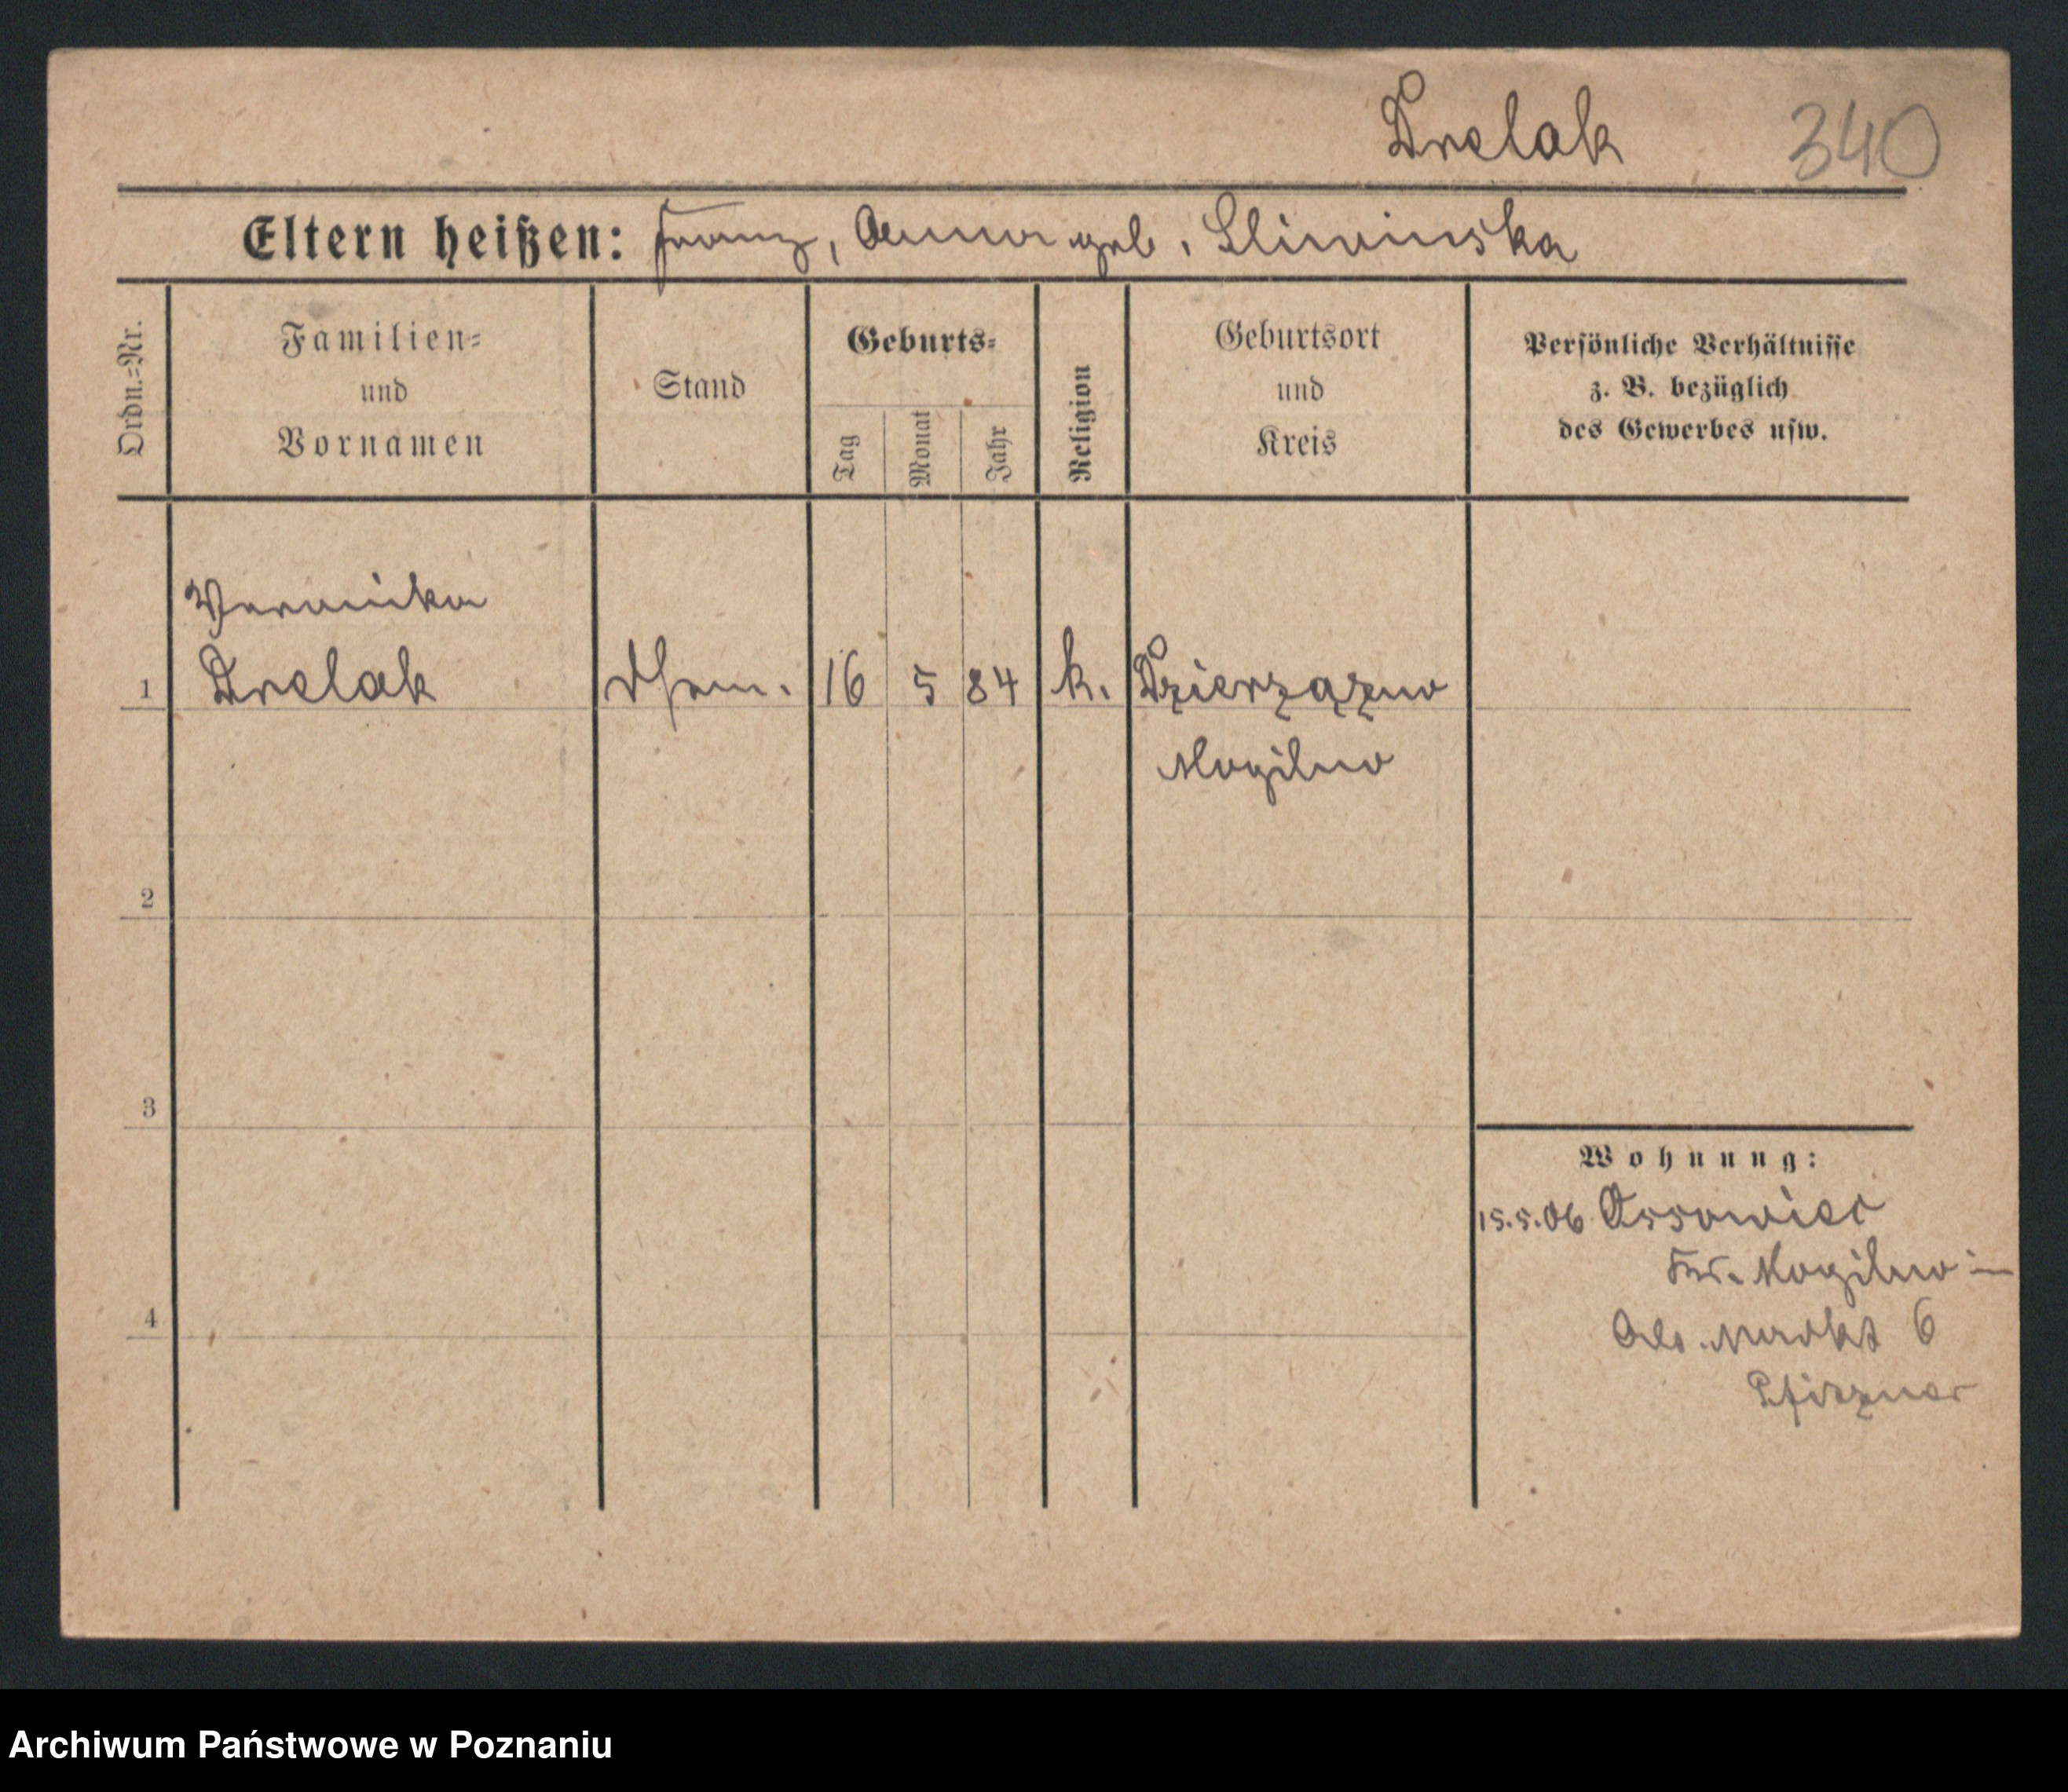 Drelak 340
Eltern heißen: Franz, Anna geb. Sliwinska
Ordn.=Nr.
Familien=
und
Vornamen
Stand
Geburts=
Tag
Monat
Jahr
Religion
Geburtsort
und
Kreis
Persönliche Verhältnisse
z. B. bezüglich
des Gewerbes usw.
Veronika
1 Drelak 16 5 84 k. Dzierzązno
Mogilno
2
3
4
Wohnung:
15.5.06 Ossowiec
Kr. Mogilno
Markt 6
Pfitzner
Archiwum Państwowe w Poznaniu